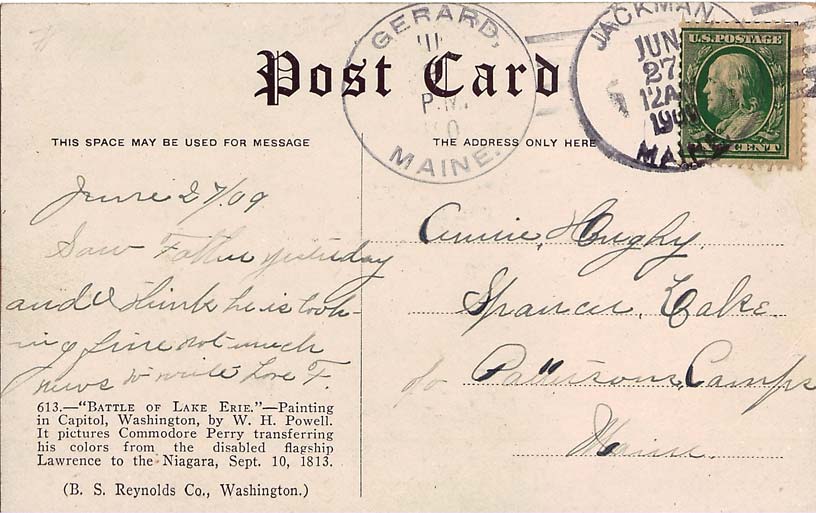 GERARD,
P.M.
MAINE.
JACKMAN
JUN
27
12A
190
MAINE
U.S. POSTAGE
CENT
Post Card
THIS SPACE MAY BE USED FOR MESSAGE
THE ADDRESS ONLY HERE
June 27/09
Saw Father yesterday
and I think he is look-
ing fine not much
news to write Love F.
613.—"BATTLE OF LAKE ERIE."—Painting
in Capitol, Washington, by W. H. Powell.
It pictures Commodore Perry transferring
his colors from the disabled flagship
Lawrence to the Niagara, Sept. 10, 1813.
(B. S. Reynolds Co., Washington.)
Annie Hughy
Spencer Lake
c/o Pattersons Camps
Maine